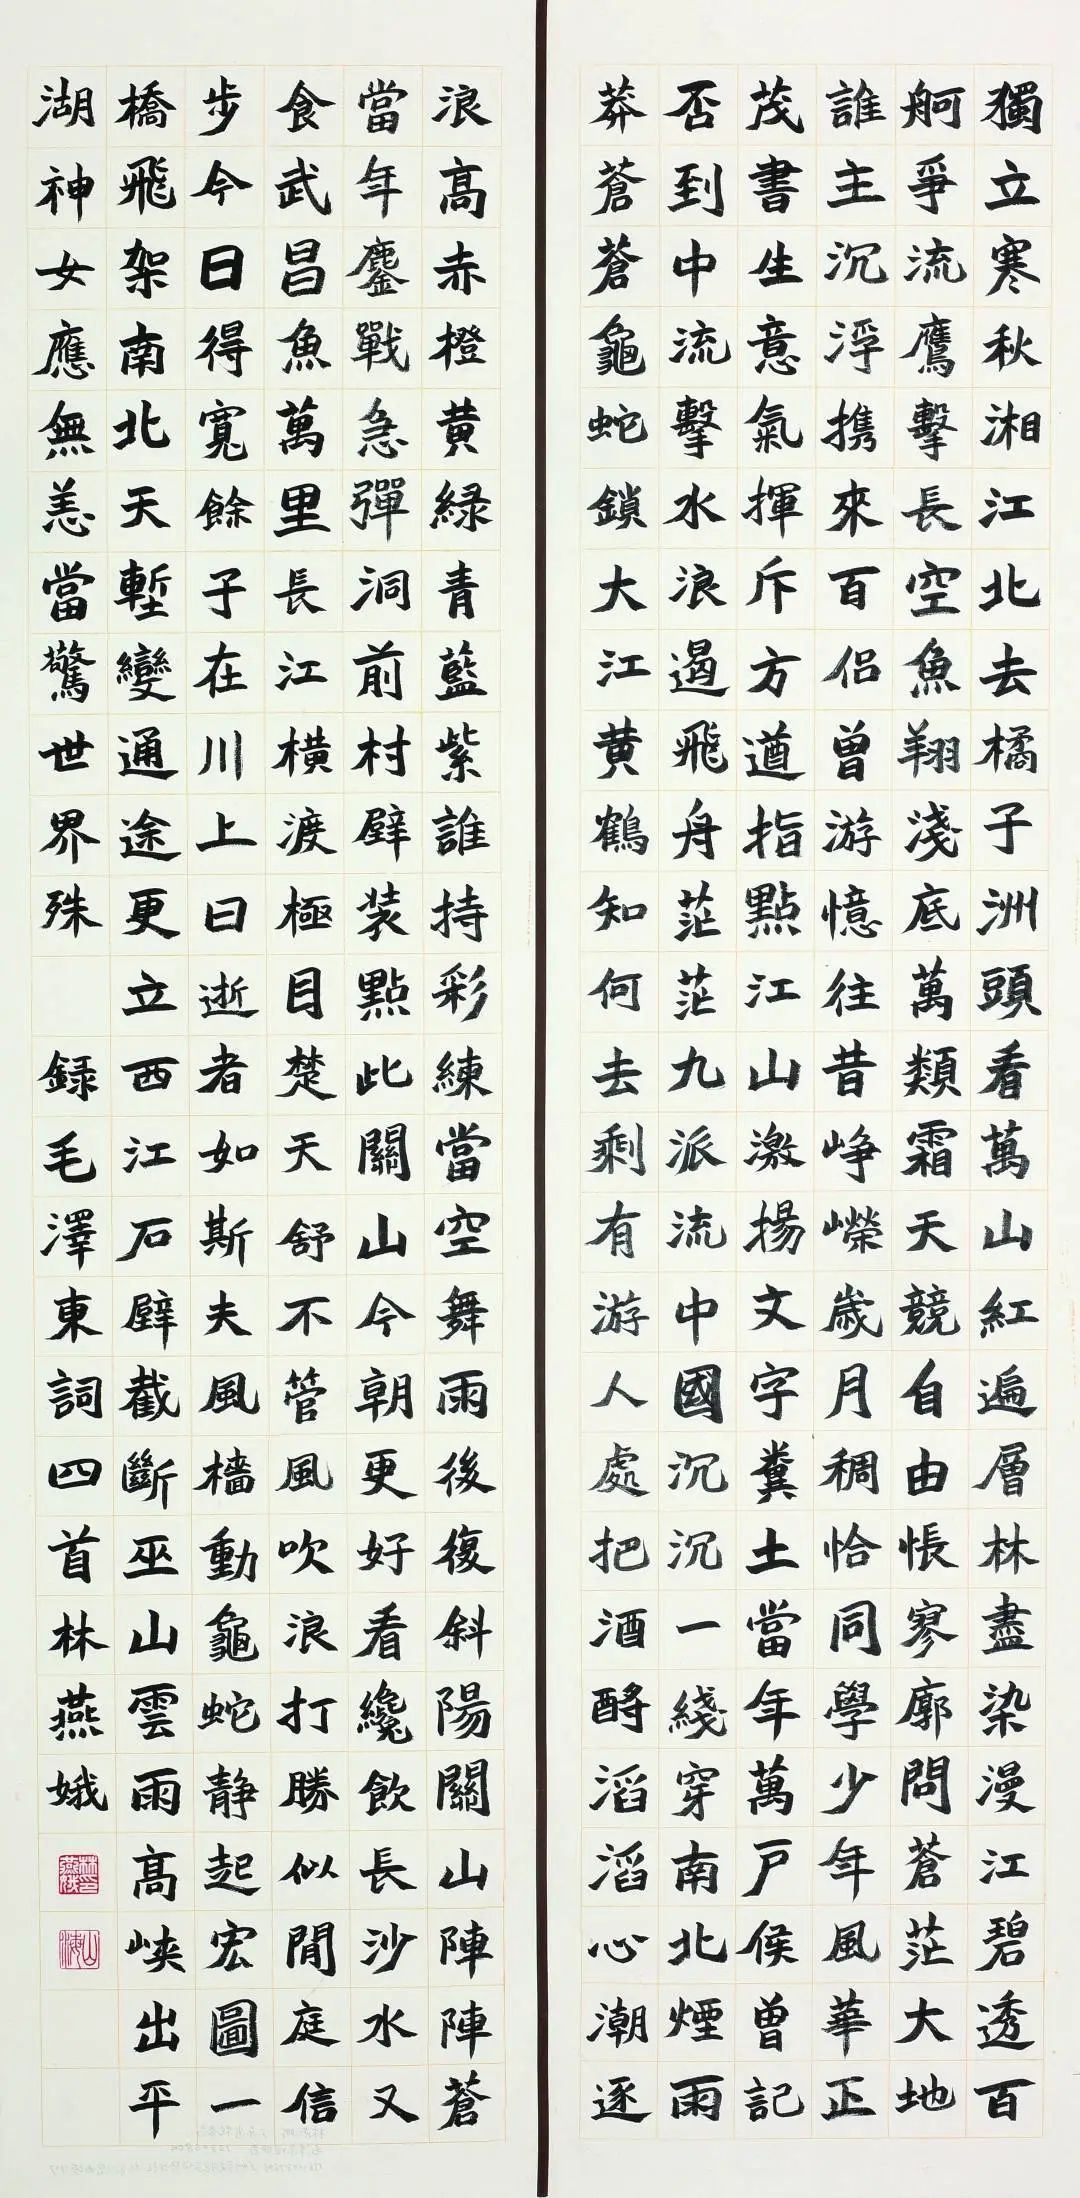 獨立寒秋湘江北去橘子洲頭看萬山紅遍層林盡染漫江碧透百
舸爭流鷹擊長空魚翔淺底萬類霜天競自由悵寥廓問蒼茫大地
誰主沉浮携來百侣曾游憶往昔崢嶸歲月稠恰同學少年風華正
茂書生意氣揮斥方遒指點江山激揚文字糞土當年萬户侯曾記
否到中流擊水浪遏飛舟茫茫九派流中國沉沉一綫穿南北煙雨
莽蒼蒼龜蛇鎖大江黄鶴知何去剩有游人處把酒酹滔滔心潮逐
浪高赤橙黄緑青藍紫誰持彩練當空舞雨後復斜陽關山陣陣蒼
當年鏖戰急彈洞前村壁装點此關山今朝更好看纔飲長沙水又
食武昌魚萬里長江横渡極目楚天舒不管風吹浪打勝似閒庭信
步今日得寬餘子在川上曰逝者如斯夫風檣動龜蛇静起宏圖一
橋飛架南北天塹變通途更立西江石壁截斷巫山雲雨高峽出平
湖神女應無恙當驚世界殊 録毛澤東詞四首林燕娥
林燕娥印